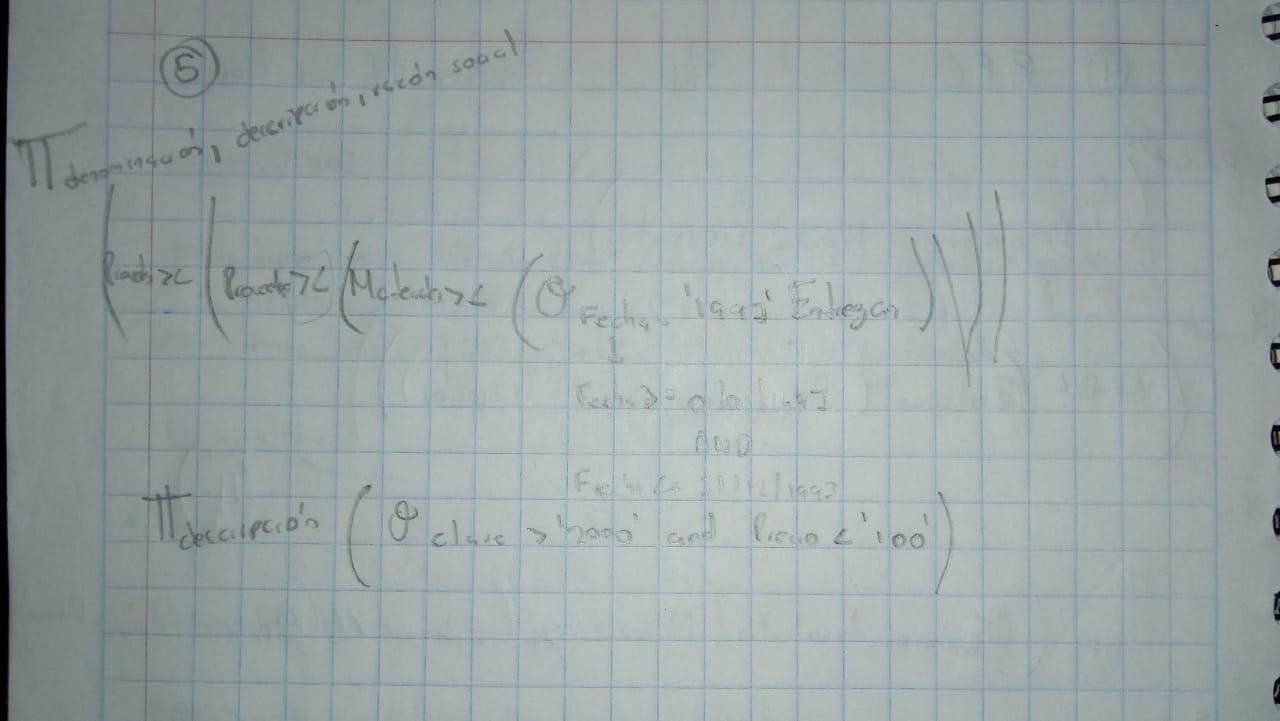 5
π denominación, descripción, razón social
( >< ( >< (Materiales >< (σ Fecha = '1997' Entregan))))
↓
Fecha >= /1997
AND
Fecha <= /12/1997
π descripción (σ clave > '2000' and Precio < '100')